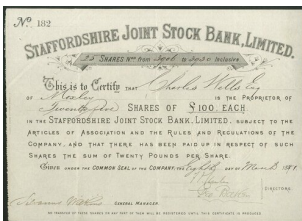 No. 132
STAFFORDSHIRE JOINT STOCK BANK, LIMITED.
25 SHARES Nos. from 3006 to 3030 Inclusive
This is to Certify THAT Charles Wells Esq
OF IS THE PROPRIETOR OF
Twenty five SHARES OF £100 EACH
IN THE STAFFORDSHIRE JOINT STOCK BANK, LIMITED. SUBJECT TO THE
ARTICLES OF ASSOCIATION AND THE RULES AND REGULATIONS OF THE
COMPANY, AND THAT THERE HAS BEEN PAID UP IN RESPECT OF SUCH
SHARES THE SUM OF TWENTY POUNDS PER SHARE.
Given UNDER THE COMMON SEAL OF THE COMPANY, THE Eighth DAY OF March
DIRECTORS.
GENERAL MANAGER.
NO TRANSFER OF THESE SHARES OR ANY PART OF THEM WILL BE REGISTERED UNTIL THIS CERTIFICATE IS PRODUCED